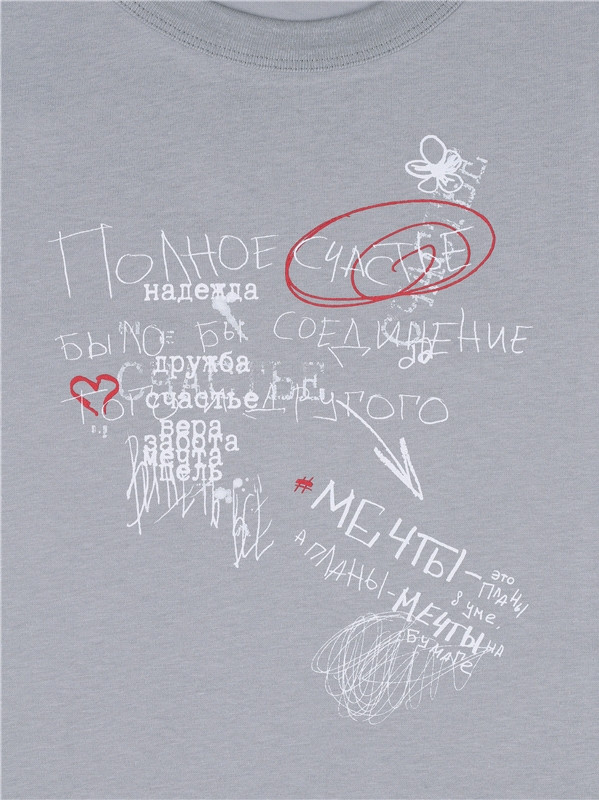 ПОЛНОЕ СЧАСТЬЕ
надежда
БЫЛО БЫ СОЕДИНЕНИЕ
дружба
СЧАСТЬЕ
счастье
ТОГО И ДРУГОГО
вера
забота
мечта
цель
#МЕЧТЫ-
это
ПЛАНЫ
в уме,
А ПЛАНЫ-
МЕЧТЫ НА
БУМАГЕ